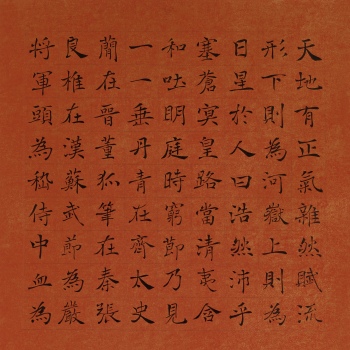 天地有正氣雜然賦流
形下則為河嶽上則為
日星於人曰浩然沛乎
塞蒼冥皇路當清夷含
和吐明庭時窮節乃見
一一垂丹青在齊太史
簡在晉董狐筆在秦張
良椎在漢蘇武節為嚴
將軍頭為嵇侍中血為